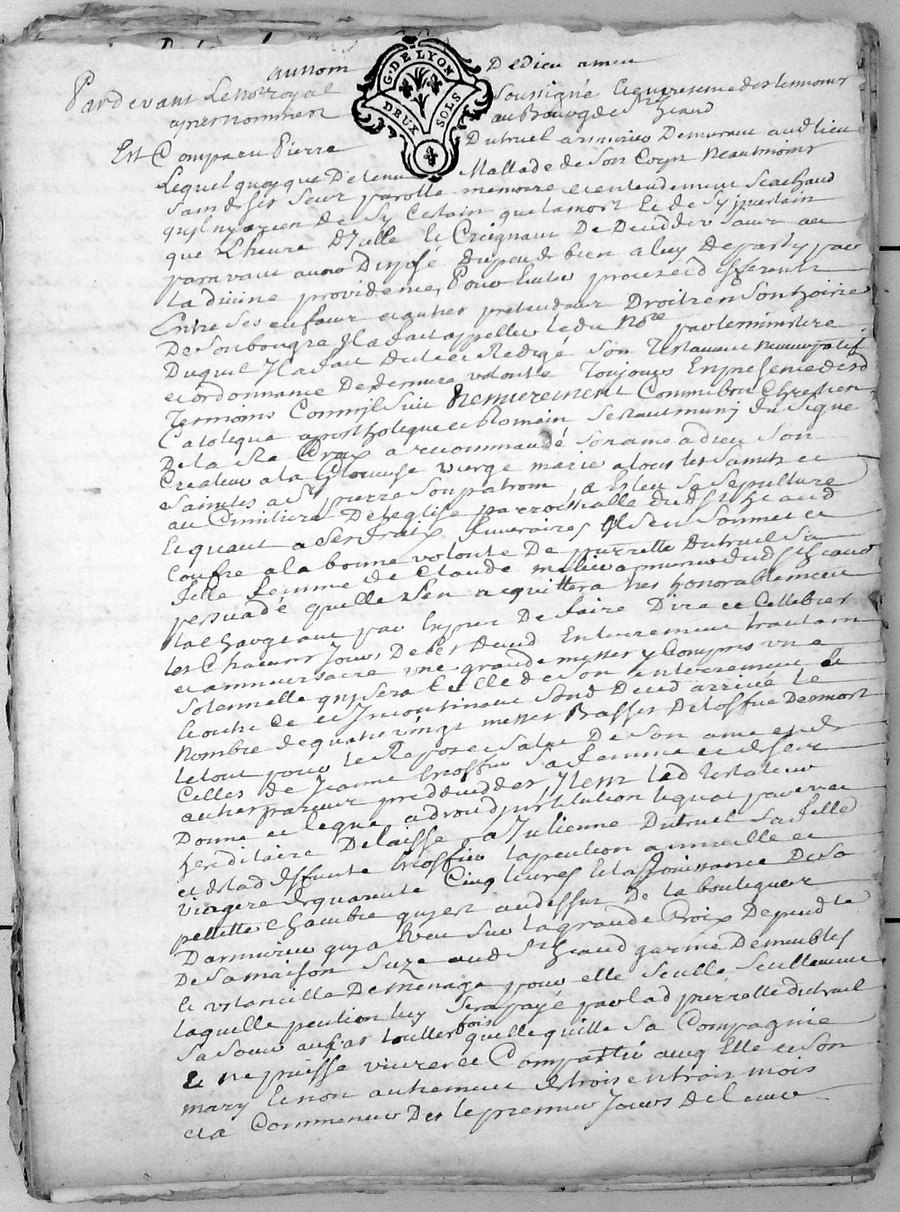 au nom De dieu amen
Pardevant Le nore royal soussigné et en presence des temoins
apres nommen au Bourg de St heaud
Est Comparu Pierre Dutruel armurier Demeurant audlieu
G. DE LYON
DEUX SOLS
Lequel quoy que Detenu Mallade de Son Corps Neautmoins
Sain de ses Sens parolle memoire et entendement Scachand
quil ny a rien de Sy Certain que la mort Et de Sy incertain
que L'heure D'Icelle Et Craignant De Decedder Sans au
paravant avoir Dispose Du peu de bien a luy Departy par
La divine providence, Pour Eviter proces et differents
Entre Ses enfans et autres pretendant Droits en Son hoirie
De Son bon gre Il a fait appeller ledit Nore par le ministere
Duquel Il a fait et Redigé Son Testament Nuncupatif
et ordonnance De derniere volonté Toujours En presence desd
Temoins Comm'il Suit Premierement Comme bon Chrestien
Catolique apostholique et Romain Sestant muny du Signe
De la Ste Croix a recommandé Son ame a dieu Son
Createur a la Glorieuse vierge marie a tous les Saints et
Saintes a St pierre Son patron, a Esleu Sa Sepulture
au Cimitiere De leglise parrochialle dud St heaud
Et quant a Ses fraix funeraires Il Sen Soumet et
Confie a la bonne volonté De pierrette Dutruel Sa
fille femme de Claude armurier dud St heaud
persuadé quelle Sen acquittera tres honorablement
La Chargeant par Expres De faire Dire et Cellebrer
les Chacuns Jours De Ses Deced Enterrement trantain
et anniversaire une grande messe y Compris une
Solennelle qui Sera Celle de Son enterrement Et
Et outre Ce et Incontinant Sond Deced arrivée le
Nombre de quatre vingt messes Basses De loffice Des mort
le tout pour le Repos et Salut De Son ame et de
Celles de Jeanne Sa femme et de ses
autres parens predecedder Item led testateur
Donne et legue a droit d'institution
hereditaire Delaisse a Julienne Dutruel Sa fille
et de lad deffunte la pention annuelle et
viagere de quarante Cinq livres Et la Jouissance De Sa
pettitte Chambre qui est au dessus De la boutique
D'armurier qui a Veu Sur la grande Croix Depend te
De Sa maison Size aud St heaud garnie De meubles
Et ustancille De menage pour elle Seulle Seullement
Laquelle pention luy Sera payé par lad pierrette dutruel
Sa Soeur au Cas touttes fois quelle quitte Sa Compagnie
Et ne puisse vivre et Compattir avecq Elle et Son
mary Et non autrement de trois en trois mois
et a Commencer Des le premier Jours de leur